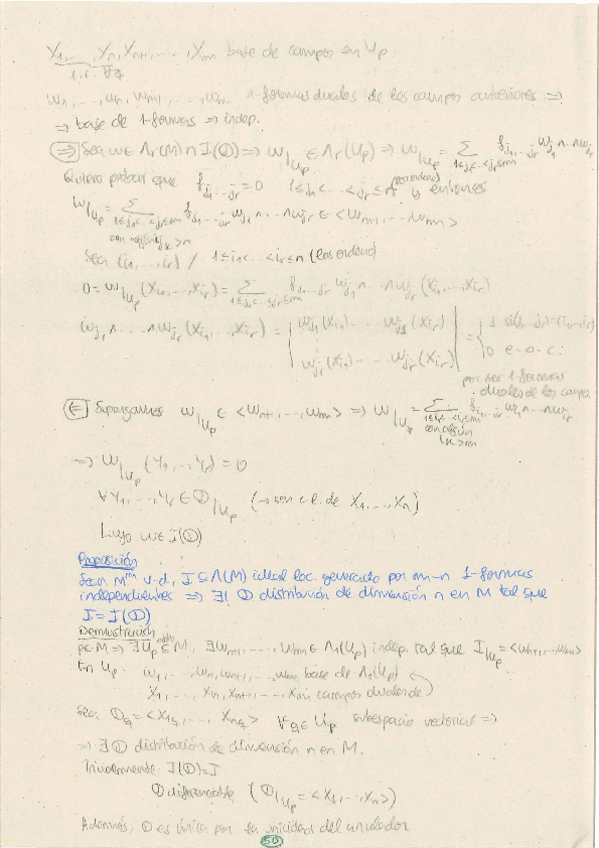 X₁, ..., Xₙ, Xₙ₊₁, ..., Xₘ base de campos en Uₚ
ω₁, ..., ωₙ, ωₙ₊₁, ..., ωₘ 1-formas duales de los campos anteriores ⇒
⇒ base de 1-formas ⇒ indep.
⇒) Sea ω ∈ Λᵣ(M) ∩ I(𝒟) ⇒ ω|Uₚ ∈ Λᵣ(Uₚ) ⇒ ω|Uₚ = Σ 1≤j₁<...<jᵣ≤m f j₁...jᵣ ωj₁ ∧ ... ∧ ωjᵣ
Quiero probar que f j₁...jᵣ = 0 1≤j₁<...<jᵣ≤n y entonces
ω|Uₚ = Σ 1≤j₁<...<jᵣ≤m con algún jₖ>n f j₁...jᵣ ωj₁ ∧ ... ∧ ωjᵣ ∈ <ωₙ₊₁, ..., ωₘ>
Sea (i₁, ..., iᵣ) / 1≤i₁<...<iᵣ≤n (los ordeno)
0 = ω|Uₚ (Xi₁, ..., Xiᵣ) = Σ 1≤j₁<...<jᵣ≤m f j₁...jᵣ ωj₁ ∧ ... ∧ ωjᵣ (Xi₁, ..., Xiᵣ)
ωj₁ ∧ ... ∧ ωjᵣ (Xi₁, ..., Xiᵣ) = | ωj₁(Xi₁) ... ωj₁(Xiᵣ) | = { 1 si (j₁...jᵣ) = (i₁...iᵣ)
ωjᵣ(Xi₁) ... ωjᵣ(Xiᵣ) | 0 e.o.c.
por ser 1-formas
duales de los campos
⇐) Supongamos ω|Uₚ ∈ <ωₙ₊₁, ..., ωₘ> ⇒ ω|Uₚ = Σ con algún
⇒ ω|Uₚ (Y₁, ..., Yᵣ) = 0
∀ Y₁, ..., Yᵣ ∈ 𝒟|Uₚ (→ son c.l. de X₁, ..., Xₙ)
Luego ω ∈ I(𝒟)
Proposición
Sean Mᵐ v.d., I ⊆ Λ(M) ideal loc. generado por m-n 1-formas
independientes ⇒ ∃! 𝒟 distribución de dimensión n en M tal que
I = I(𝒟)
Demostración
p∈M ⇒ ∃ Uₚ ⊆ M, ∃ ωₙ₊₁, ..., ωₘ ∈ Λ₁(Uₚ) indep. tal que I|Uₚ = <ωₙ₊₁, ..., ωₘ>
En Uₚ: ω₁, ..., ωₙ, ωₙ₊₁, ..., ωₘ base de Λ₁(Uₚ)
X₁, ..., Xₙ, Xₙ₊₁, ..., Xₘ campos duales de
Sea 𝒟q = <X₁q, ..., Xₙq> ∀q∈Uₚ subespacio vectorial ⇒
⇒ ∃ 𝒟 distribución de dimensión n en M.
Trivialmente I(𝒟) = I
𝒟 diferenciable (𝒟|Uₚ = <X₁, ..., Xₙ>)
Además, 𝒟 es única por la unicidad del anulador
50